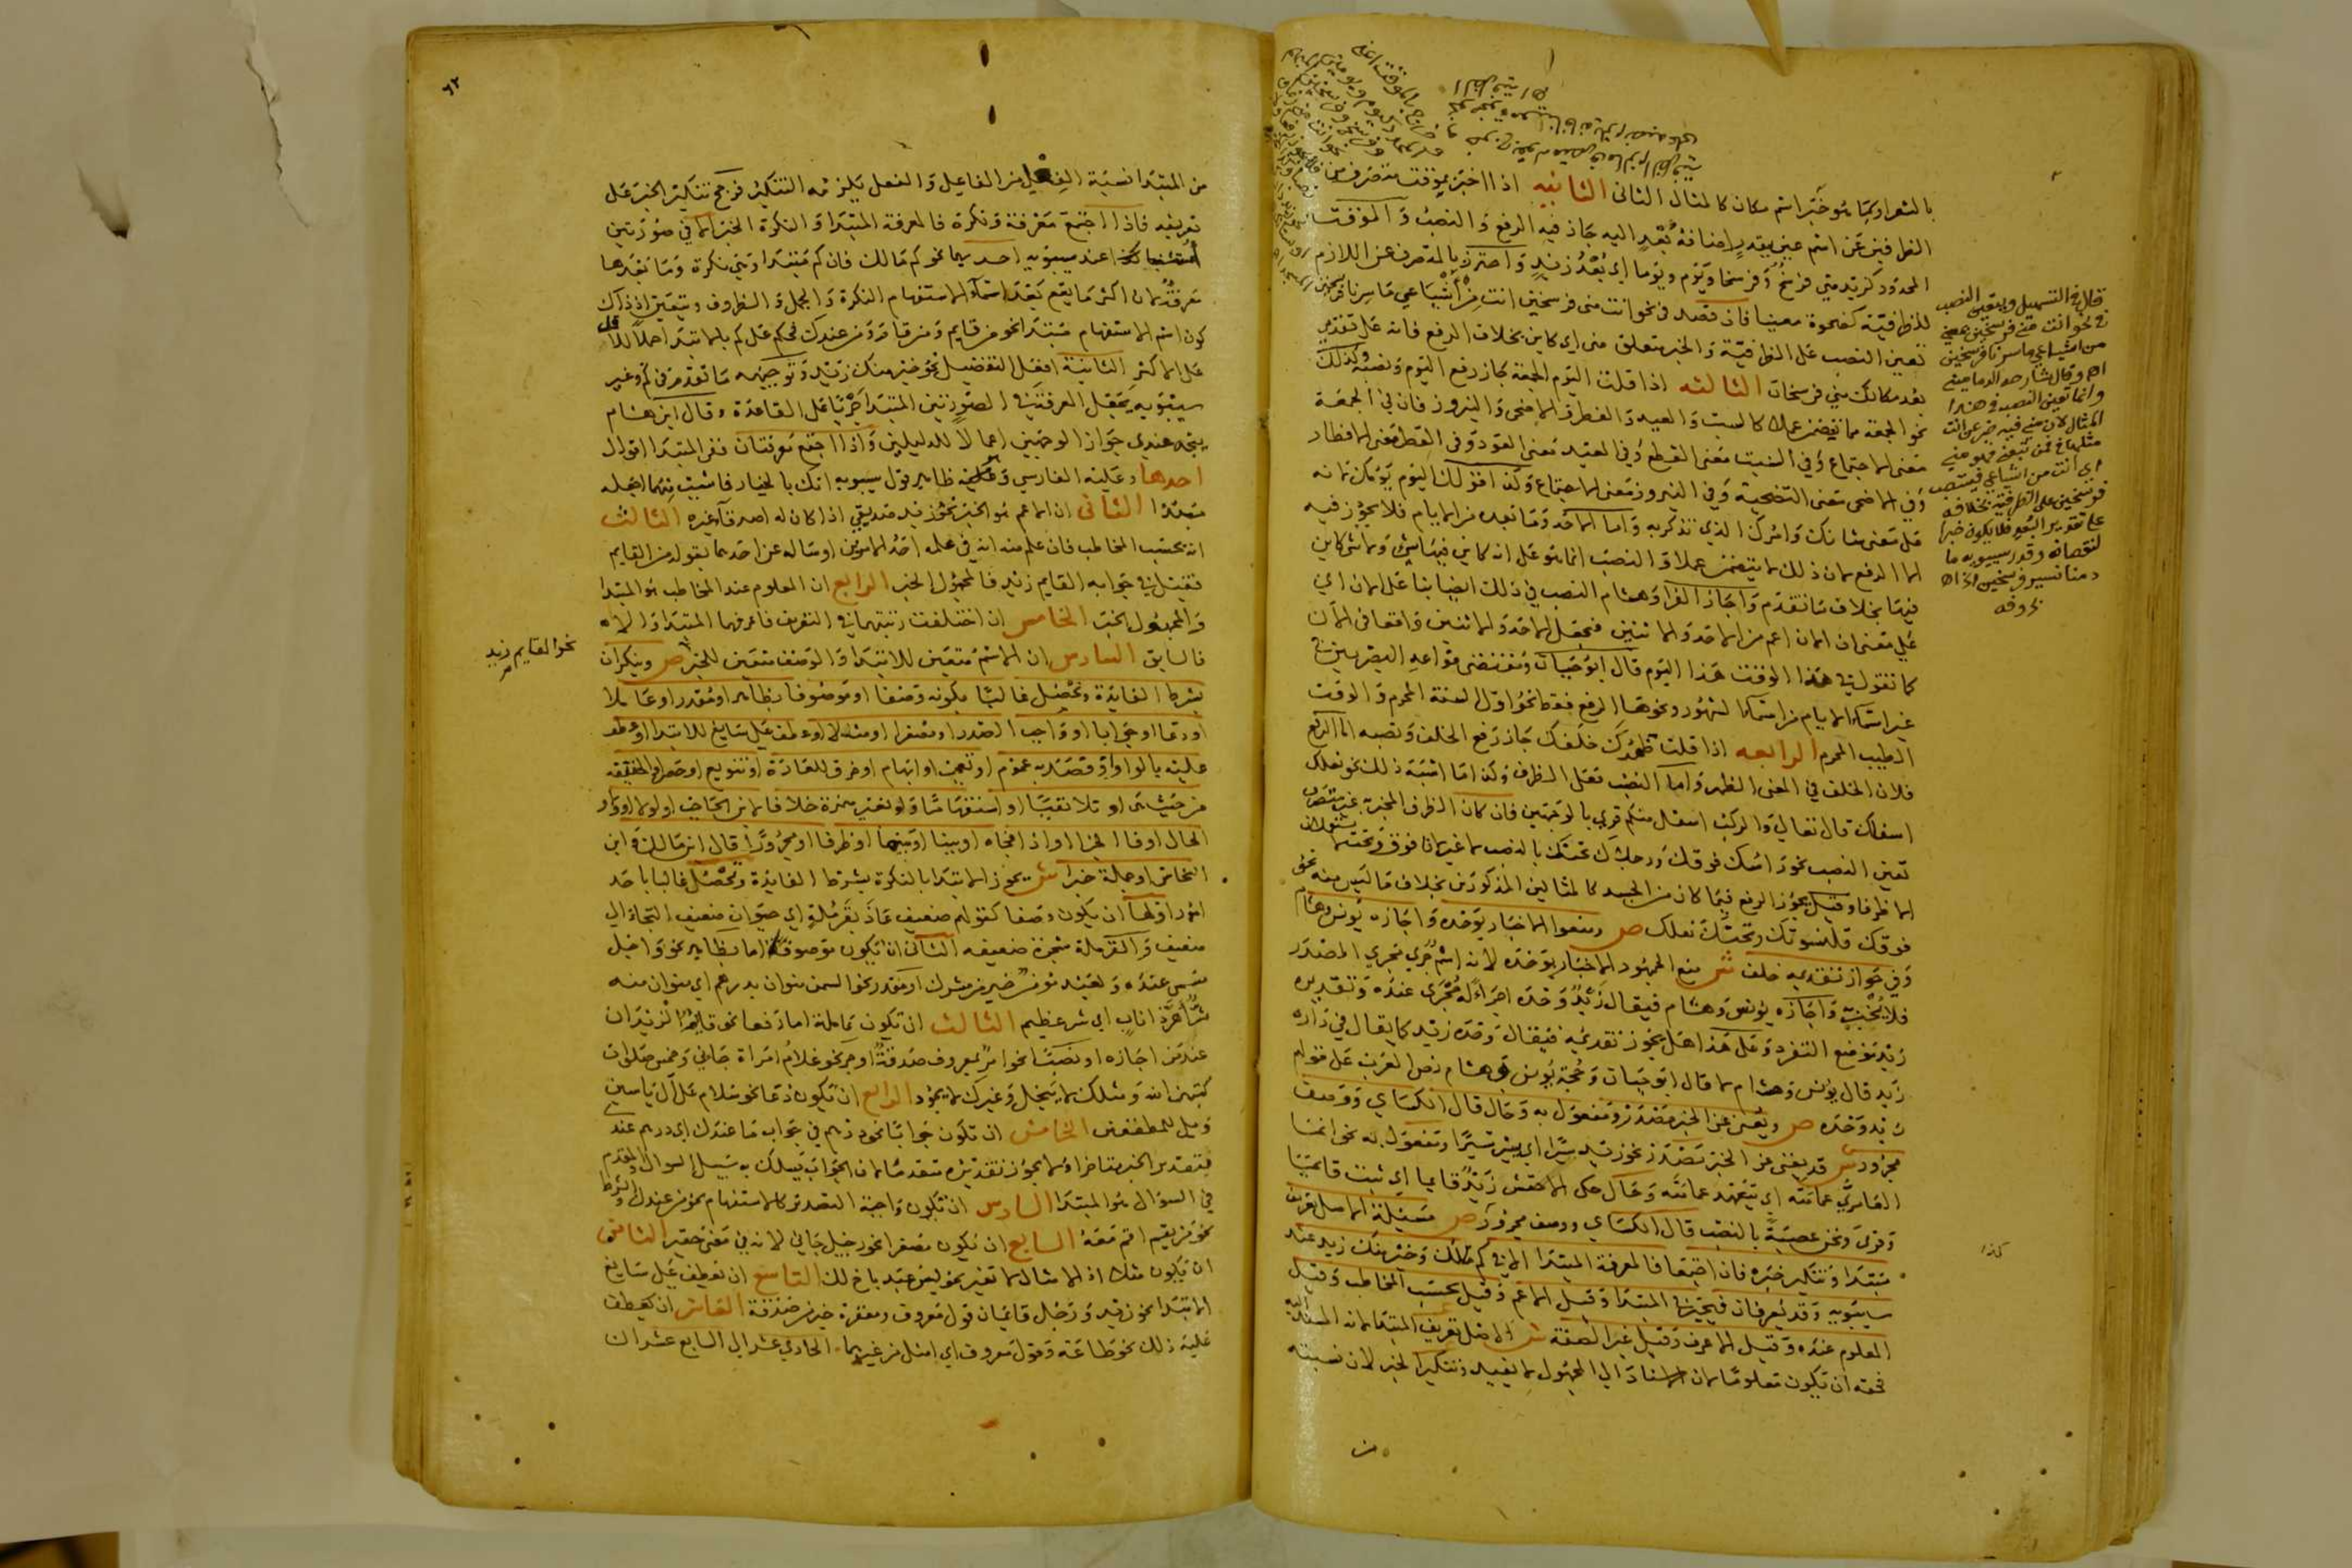 بالشعر او كما هو خبر اسم مكان كالمثال الثاني الثانيه اذا اخبر بموقت متصرف من
الظرفين عن اسم عين بعد اليه جاز فيه الرفع والنصب والموقت
المحدود كزيد مني فرسخ وفرسخا ويوم ويوما اي بعد زيد واحترز بالمتصرف عن اللازم
للظرفية كضحوة معينا فان قصد في نحو انت مني فرسخين انت من اشياعي ما سرنا فرسخين
تعين النصب على الظرفية والخبر متعلق مني اي كاين بخلاف الرفع فانه على تقدير
بعد مكانك مني فرسخان الثالثه اذا قلت اليوم الجمعة جاز رفع اليوم ونصبه وكذلك
نحو الجمعة مما يتضمن عملا كالسبت والعيد والفطر والاضحى والنيروز فان في الجمعة
معنى الاجتماع وفي السبت معنى القطع وفي العيد معنى العود وفي الفطر معنى الافطار
وفي الاضحى معنى التضحية وفي النيروز معنى الاجتماع وكذا قولك اليوم يومك لانه
على معنى شانك وامرك الذي تذكر به واما الاحد وما بعده من الايام فلا يجوز فيه
الا الرفع لان ذلك لا يتضمن عملا والنصب انما هو على انه كاين فيها شي ولا شي كاين
فيها بخلاف ما تقدم واجاز الفرا وهشام النصب في ذلك ايضا بنا على الان اي
على معنى ان الان اعم من الاحد والاثنين فيجعل الاحد والاثنين واقعا في الان
كما تقول في هذا الوقت هذا اليوم قال ابو حيان ومقتضى قواعد البصريين في
غير اسماء الايام من اسماء الشهور ونحوها الرفع فقط نحو اول السنة المحرم والوقت
الطيب المحرم الرابعه اذا قلت ظهرك خلفك جاز رفع الخلف ونصبه اما الرفع
فلان الخلف في المعنى الظهر واما النصب فعلى الظرف وكذا ما اشبه ذلك نحو نعلك
اسفلك قال تعالى والركب اسفل منكم قري بالوجهين فان كان الظرف المخبر به غير متصرف
تعين النصب نحو راسك فوقك ورجلاك تحتك بالنصب لا غير لان فوق وتحت لا يستعملان
الا ظرفا وقيل يجوز الرفع فيما كان من الجسد كالمثالين المذكورين بخلاف ما ليس منه نحو
فوقك قلنسوتك وتحتك نعلك ص ومنعوا الاخبار بوحده واجازه يونس وهشام
وفي جواز تقديمه خلف ش منع الجمهور الاخبار بوحده لانه اسم جرى مجرى المصدر
فلا يخبر به واجازه يونس وهشام فيقال زيد وحده اجراء له مجرى عنده وتقديره
زيد موضع التفرد وعلى هذا هل يجوز تقديمه فيقال وحده زيد كما يقال في داره
زيد قال يونس وهشام لا قال ابو حيان وحجة يونس وهشام نص العرب على قولهم
زيد وحده ص ويغني عن الخبر مصدر ومفعول به وحال قال الكساي ووصف
مجرور ش قد يغني عن الخبر مصدر نحو زيد سيرا اي يسير سيرا ومفعول به نحو انما
العامري عمامته اي يتعهد عمامته وحال حكى الاخفش زيد قايما اي ثبت قايما
وقري ونحن عصبة بالنصب قال الكساي ووصف مجرور ص مسيلة الاصل تعريف
مبتدا وتنكير خبره فان اجتمعا فالمعرفة المبتدا الا في كم مالك وخير منك زيد عند
سيبويه وقد يعرفان فيخير في المبتدا وقيل الاعم وقيل بحسب المخاطب وقيل
المعلوم عنده وقيل الاعرف وقيل غير الصفة ش الاصل تعريف المبتدا لانه المسند اليه
فحقه ان يكون معلوما لان الاسناد الى المجهول لا يفيد وتنكير الخبر لان نسبته
قال في التسهيل ويتعين النصب
في نحو انت مني فرسخين بمعنى
من اشياعي ما سرنا فرسخين
اه وقال شارحه الدماميني
وانما تعين النصب في هذا
المثال لان مني فيه خبر عن انت
مثلها في فمن تبعني فهو مني
اي انت من اشياعي فينتصب
فرسخين على الظرفية بخلافه
على تقدير البعد فلا يكون خبرا
لنقصانه وقدر سيبويه ما
دمنا نسير فرسخين اه
بحروفه
كذا
من
٦٢
من المبتدا نسبة الفعل من الفاعل والفعل يلزمه التنكير فرجح تنكير الخبر على
تعريفه فاذا اجتمع معرفة ونكرة فالمعرفة المبتدا والنكرة الخبر الا في صورتين
عند سيبويه احديهما نحو كم مالك فان كم مبتدا وهي نكرة وما بعدها
معرفة لان اكثر ما يقع بعد اسماء الاستفهام النكرة والجمل والظروف ويتعين اذ ذاك
كون اسم الاستفهام مبتدا نحو من قايم ومن قام ومن عندك فحكم على كم بالابتدا حملا للاقل
على الاكثر الثانية افعل التفضيل نحو خير منك زيد وتوجيهه ما تقدم في كم وغير
سيبويه يجعل المعرفة في الصورتين المبتدا جريا على القاعدة وقال ابن هشام
يتجه عندي جواز الوجهين اعمالا للدليلين واذا اجتمع معرفتان ففي المبتدا اقوال
احدها وعليه الفارسي وعليه ظاهر قول سيبويه انك بالخيار فما شيت منهما اجعله
مبتدا الثاني ان الاعم هو الخبر نحو زيد صديقي اذا كان له اصدقاء غيره الثالث
انه بحسب المخاطب فان علم منه انه في علمه احد الامرين او ساله عن احدهما بقوله من القايم
فقيل في جوابه القايم زيد فالمجهول الخبر الرابع ان المعلوم عند المخاطب هو المبتدا
والمجهول الخبر الخامس ان اختلفت رتبتهما في التعريف فاعرفهما المبتدا والا
فالسابق السادس ان الاسم متعين للابتدا والوصف متعين للخبر ص وينكران
بشرط الفايدة وتحصل غالبا بكونه وصفا او موصوفا بظاهر او مقدر او عاملا
او دعا او جوابا او واجب الصدر او مصغرا او مثلا او عطف على سايغ للابتدا او عطف
عليه بالواو او قصد به عموم او تعجب او ابهام او خرق للعادة او تنويع او حصر او الحقيقة
من حيث هي او تلا نفيا او استفهاما ولو بغير همزة خلافا لابن الحاجب او لولا او واو
الحال او فا الجزا او اذا فجاه او بينا او بينما او ظرفا او مجرورا قال ابن مالك وابن
النحاس او جملة خبرا ش يجوز الابتدا بالنكرة بشرط الفايدة وتحصل غالبا باحد
امور اولها ان يكون وصفا كقولهم ضعيف عاذ بقرملة اي حيوان ضعيف التجا الى
ضعيف والقرملة شجرة ضعيفه الثاني ان يكون موصوفا اما بظاهر نحو واجل
مسمى عنده ولعبد مومن خير من مشرك او مقدر نحو السمن منوان بدرهم اي منوان منه
شر اهر ذا ناب اي شر عظيم الثالث ان يكون عاملة اما رفعا نحو قايم الزيدان
عند من اجازه او نصبا نحو امر بمعروف صدقة او جر نحو غلام امراة جاني وخمس صلوات
كتبهن الله ومثلك لا يبخل وغيرك لا يجود الرابع ان يكون دعا نحو سلام على ال ياسين
وويل للمطففين الخامس ان تكون جوابا نحو درهم في جواب ما عندك اي درهم عندي
فيقدر الخبر متاخرا ولا يجوز تقديره متقدما لان الجواب يسلك به سبيل السوال والمقدم
في السؤال هو المبتدا السادس ان تكون واجبة التصدير كالاستفهام نحو من عندك والشرط
نحو من يقم اقم معه السابع ان يكون مصغرا نحو رجيل جاني لانه في معنى حقير الثامن
ان يكون مثلا اذ الامثال لا تغير نحو ليس عبد باخ لك التاسع ان تعطف على سايغ
الابتدا نحو زيد ورجل قايمان قول معروف ومغفرة خير من صدقة العاشر ان يعطف
عليه ذلك نحو طاعة وقول معروف اي امثل من غيرهما الحادي عشر الى السابع عشر ان
نحو القايم زيد